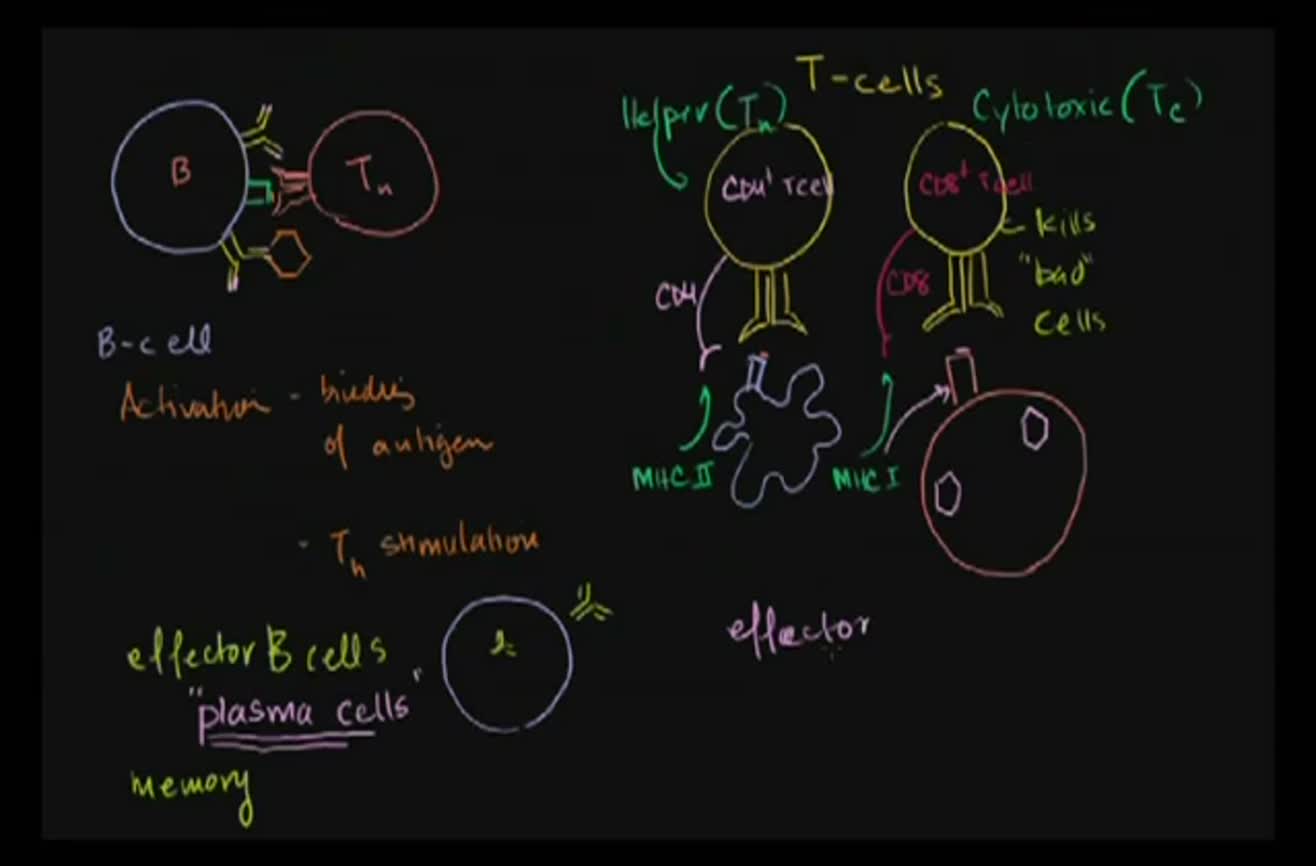 B
Tn
B-cell
Activation - binding
of antigen
- Th stimulation
effector B cells
"plasma cells"
memory
T-cells
Helper (Tn)
Cytotoxic (Tc)
CD4+ T cell
CD8+ T cell
kills
"bad"
cells
CD4
CD8
MHC II
MHC I
effector